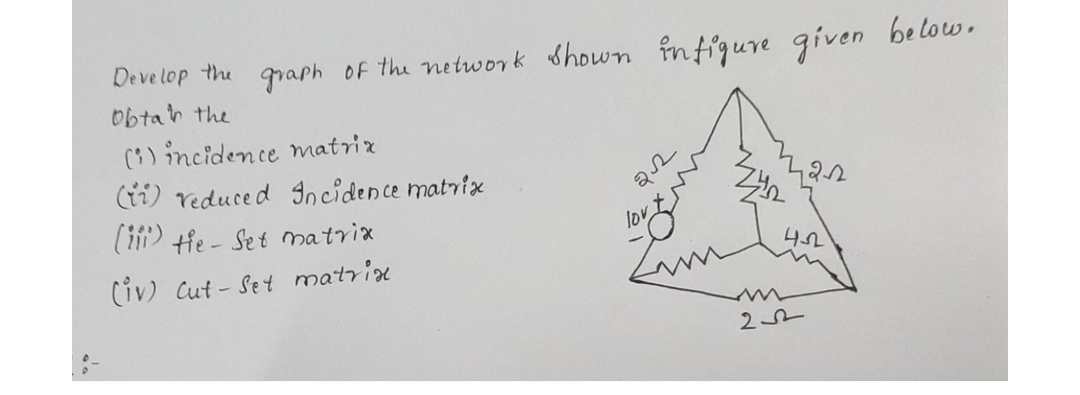 Develop the graph of the network shown in figure given below.
Obtain the
(i) incidence matrix
(ii) reduced Incidence matrix
(iii) tie-set matrix
(iv) cut-set matrix
2Ω
4Ω
2Ω
10V +
-
4Ω
2Ω
:-